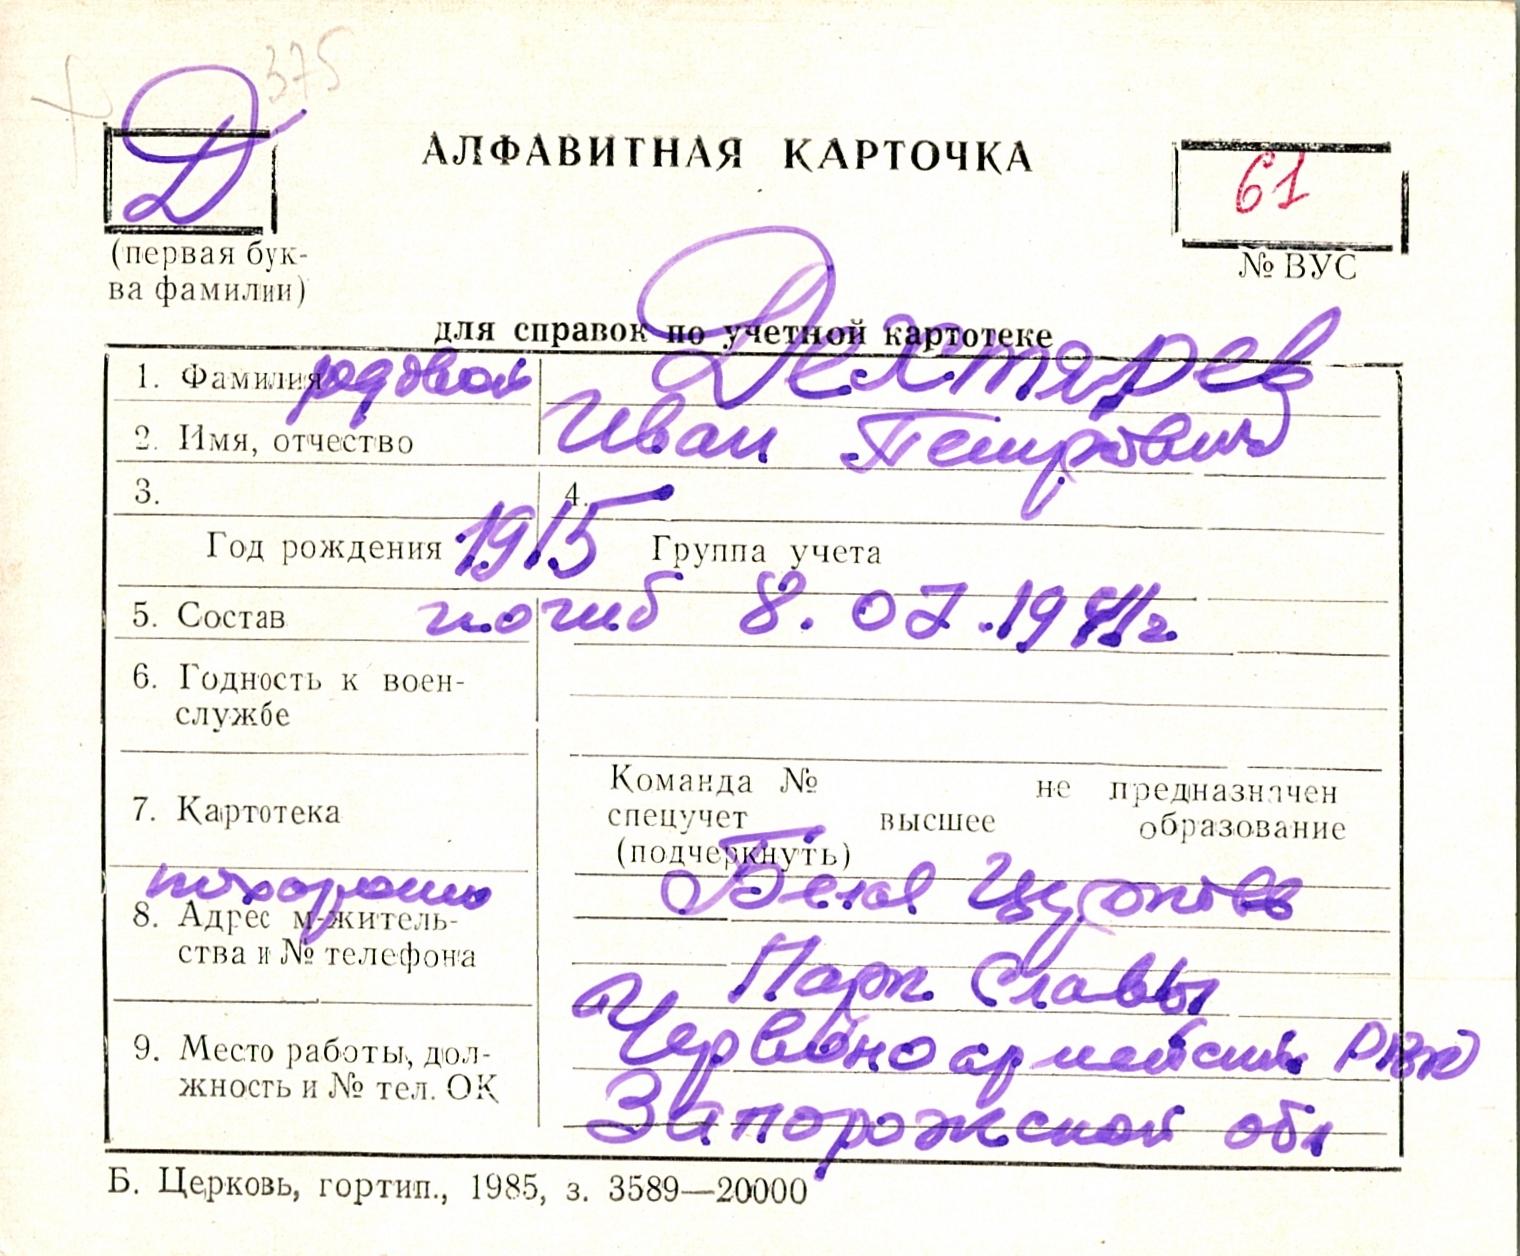 375
Д
АЛФАВИТНАЯ КАРТОЧКА
61
(первая бук-
ва фамилии)
№ ВУС
для справок по учетной картотеке
1. Фамилия рядовой Дехтярев
2. Имя, отчество Иван Петрович
3. 4.
Год рождения 1915 Группа учета
5. Состав погиб 8.07.1941г
6. Годность к воен-
службе
Команда № не предназначен
7. Картотека спецучет высшее образование
(подчеркнуть)
похоронен Белая Церковь
8. Адрес м-житель-
ства и № телефона
Парк Славы
9. Место работы, дол-
жность и № тел. ОК
Червоноармейский РВК
Запорожской обл
Б. Церковь, гортип., 1985, з. 3589—20000